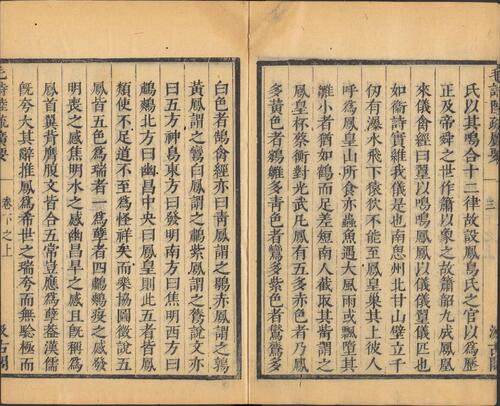 氏以其鳴合十二律故設鳳鳥氏之官以爲曆
正及帝舜之世作簫以象之故簫韶九成鳳凰
來儀禽經曰鸑以鳴鳴鳳鳳以儀儀鸑儀匹也
如衛詩實維我儀是也南恩州北甘山壁立千
仞有瀑水飛下猿狖不能至鳳皇巢其上彼人
呼爲鳳皇山所食亦蟲魚遇大風雨或飄墮其
雛小者猶如鶴而足差短南人截取其觜謂之
鳳皇杯蔡衡對光武凡鳳有五多赤色者乃鳳
多青色者鸞多黃色者鵷雛多紫色者鸑鷟多
白色者鵠禽經亦曰青鳳謂之鶡赤鳳謂之鶉
黃鳳謂之鸞白鳳謂之鷫紫鳳謂之鷟說文亦
曰五方神鳥東方曰發明南方曰焦明西方曰
鷫鷞北方曰幽昌中央曰鳳皇則此五者皆鳳
類使不足道不至爲怪祥矣而樂協圖徵說五
鳳皆五色爲瑞者一爲孽者四鷫鷞疫之感發
明喪之感焦明水之感幽昌旱之感且旣稱爲
鳳首翼背膺腹文皆合五常豈應爲孽蓋漢儒
旣夸大其辭推鳳爲希世之瑞夸而無驗極而
毛詩陸疏廣要
卷下之上
汲古閣